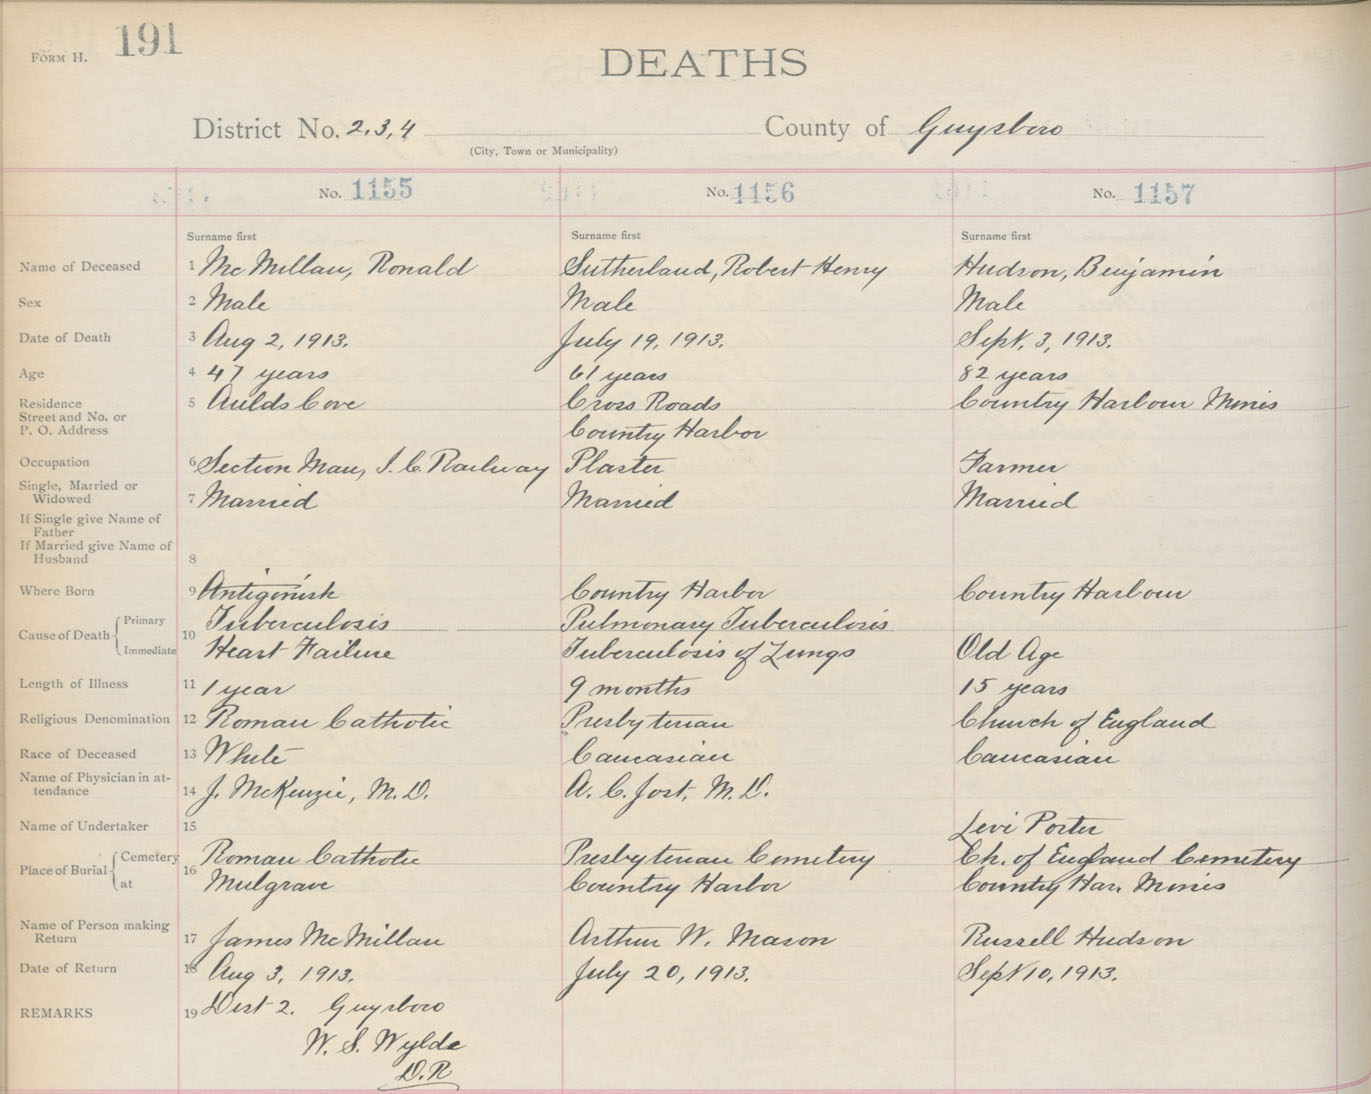 FORM H. 191
DEATHS
District No. 2, 3, 4 County of Guysboro
(City, Town or Municipality)
No. 1155 No. 1156 No. 1157
Surname first Surname first Surname first
Name of Deceased 1 McMillan, Ronald Sutherland, Robert Henry Hudson, Benjamin
Sex 2 Male Male Male
Date of Death 3 Aug 2, 1913. July 19, 1913. Sept. 3, 1913.
Age 4 47 years 61 years 82 years
Residence 5 Aulds Cove Cross Roads Country Harbour Mines
Street and No. or
P. O. Address Country Harbor
Occupation 6 Section Man, I. C. Railway Plaster Farmer
Single, Married or
Widowed 7 Married Married Married
If Single give Name of
Father
If Married give Name of
Husband 8
Where Born 9 Antigonish Country Harbor Country Harbour
Cause of Death Primary 10 Tuberculosis Pulmonary Tuberculosis
Immediate Heart Failure Tuberculosis of Lungs Old Age
Length of Illness 11 1 year 9 months 15 years
Religious Denomination 12 Roman Catholic Presbyterian Church of England
Race of Deceased 13 White Caucasian Caucasian
Name of Physician in at-
tendance 14 J. McKenzie, M. D. A. C. Jost, M. D.
Name of Undertaker 15 Levi Porter
Place of Burial Cemetery 16 Roman Catholic Presbyterian Cemetery Ch. of England Cemetery
at Mulgrave Country Harbor Country Har. Mines
Name of Person making
Return 17 James McMillan Arthur W. Mason Russell Hudson
Date of Return 18 Aug 3, 1913. July 20, 1913. Sept 10, 1913.
REMARKS 19 Dist 2. Guysboro
W. S. Wylde
D.R